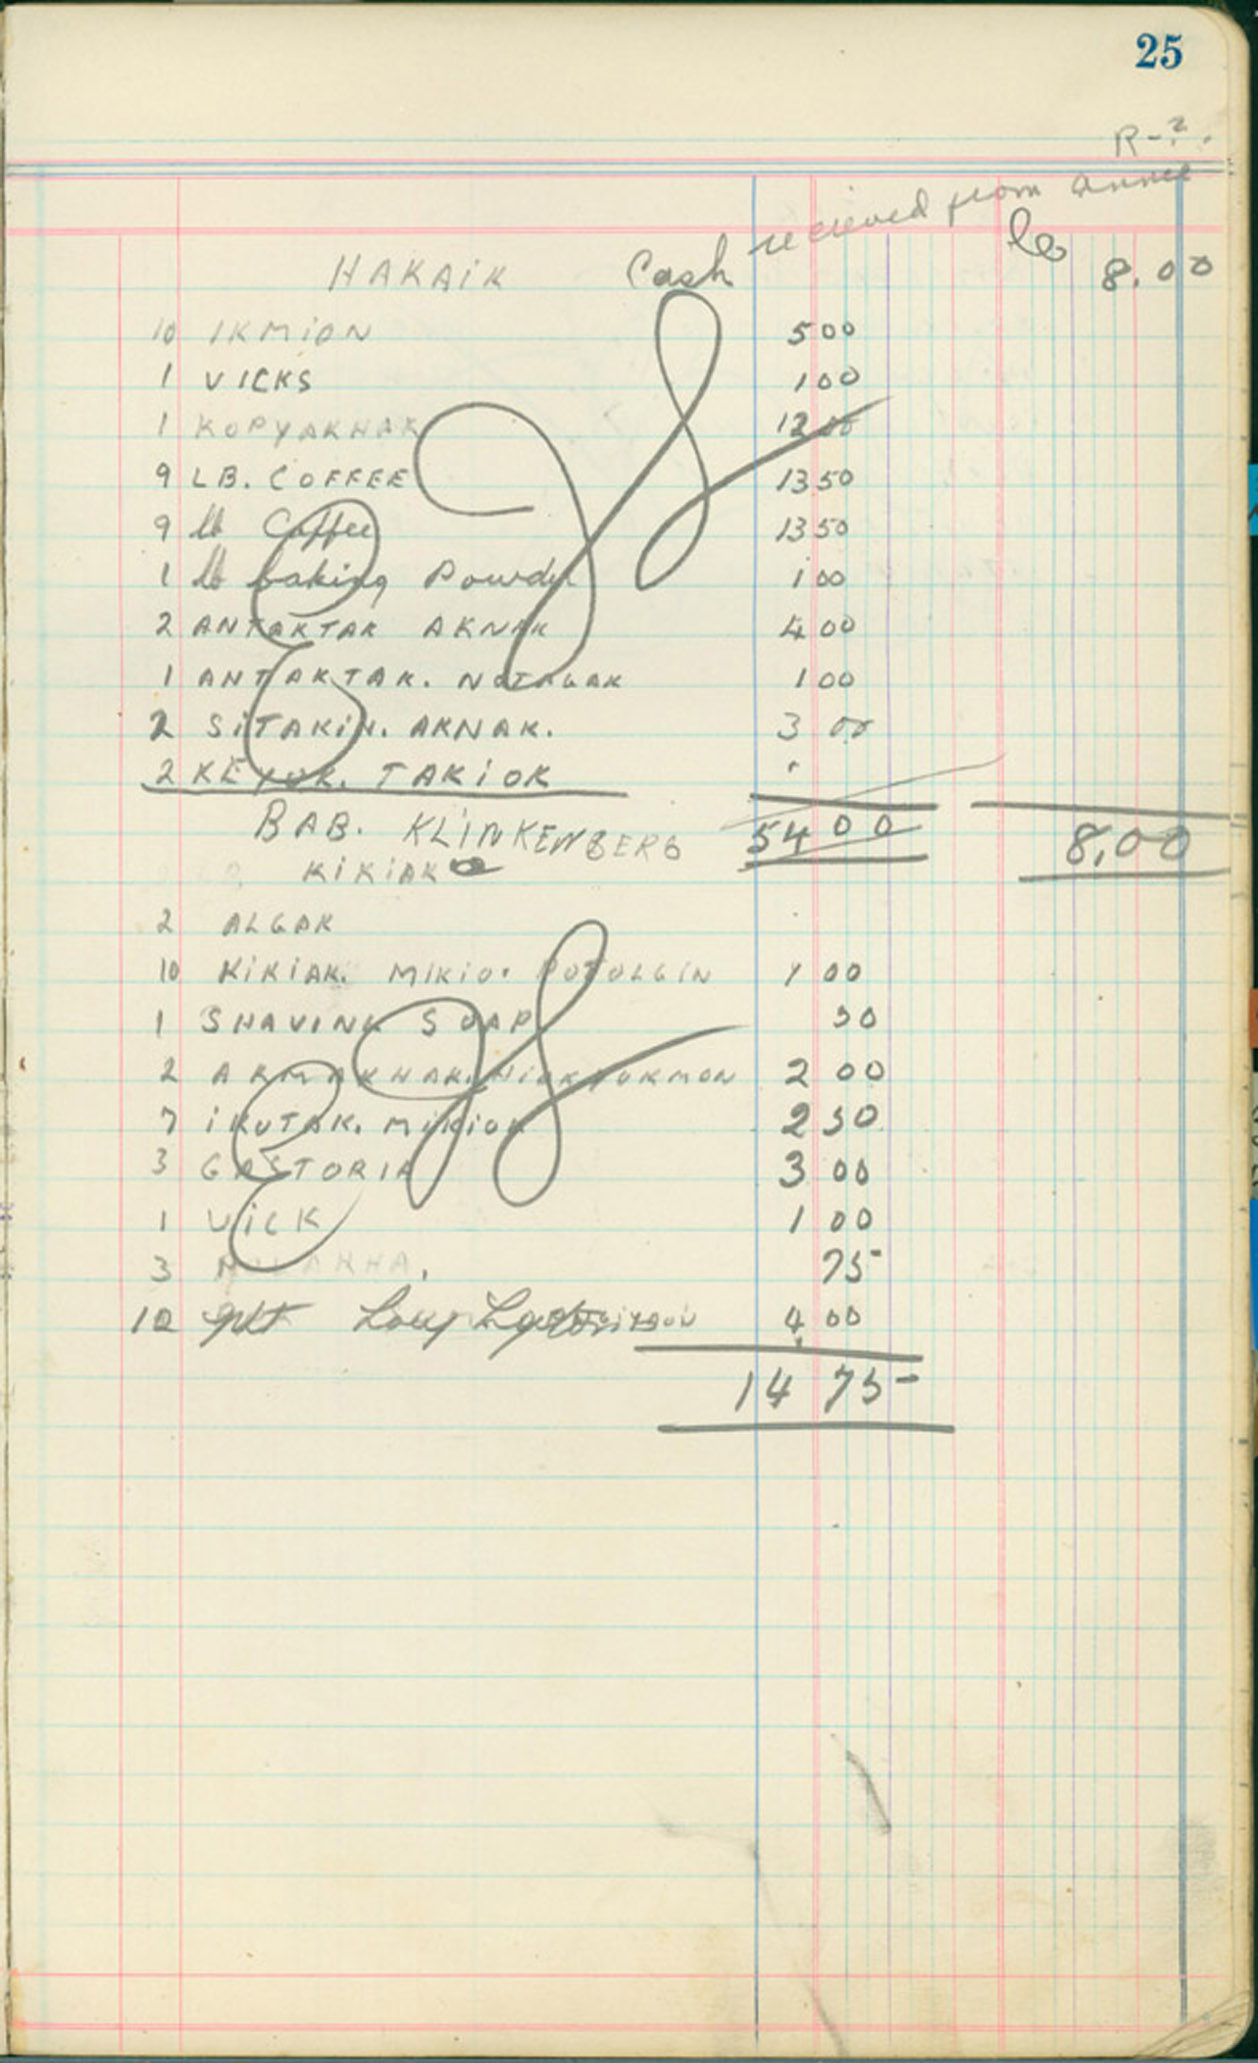 25
R-?.
Cash recieved from Annie
Co
HAKAIK 8.00
10 IKMION 5 00
1 VICKS 1 00
1 KOPYAKNAK 12 00
9 LB. COFFEE 13 50
9 lb Coffee 13 50
1 lb baking Powder 1 00
2 ANTAKTAK AKNAK 4 00
1 ANTAKTAK. NOTAGAK 1 00
2 SiTAKiN. AKNAK. 3 00
2 KEYUK. TAKIOK
BAB. KLINKENBERG 54 00 8,00
KiKiAK
2 ALGAK
10 KiKiAK. MIKIO. 1 00
1 SHAVING SOAP 50
2 ARMAKNAK. 2 00
7 IKUTAK. MIKIOK 2 50
3 GASTORIA 3 00
1 ViCK 1 00
3 75
10 4 00
14 75